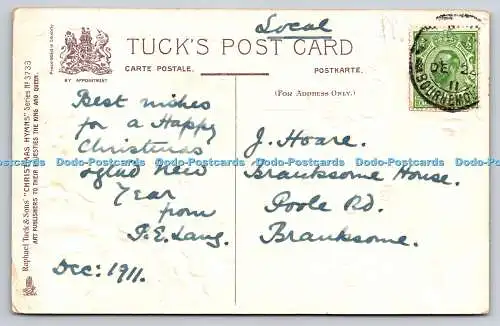 Local
TUCK'S POST CARD
CARTE POSTALE.
POSTKARTE.
BY APPOINTMENT
(FOR ADDRESS ONLY.)
Raphael Tuck & Sons' "CHRISTMAS HYMNS" Series Nº 3733
ART PUBLISHERS TO THEIR MAJESTIES THE KING AND QUEEN.
Best wishes
for a Happy
Christmas
& glad New
Year
from
P.E. Lang.
Dec: 1911.
J. Hoare.
Branksome House.
Poole Rd.
Branksome.
BOURNEMO
DE
11
Dodo-Postcards Dodo-Postcards Dodo-Postcards Dodo-Postcards Dodo-Postcards Dodo-Postcards